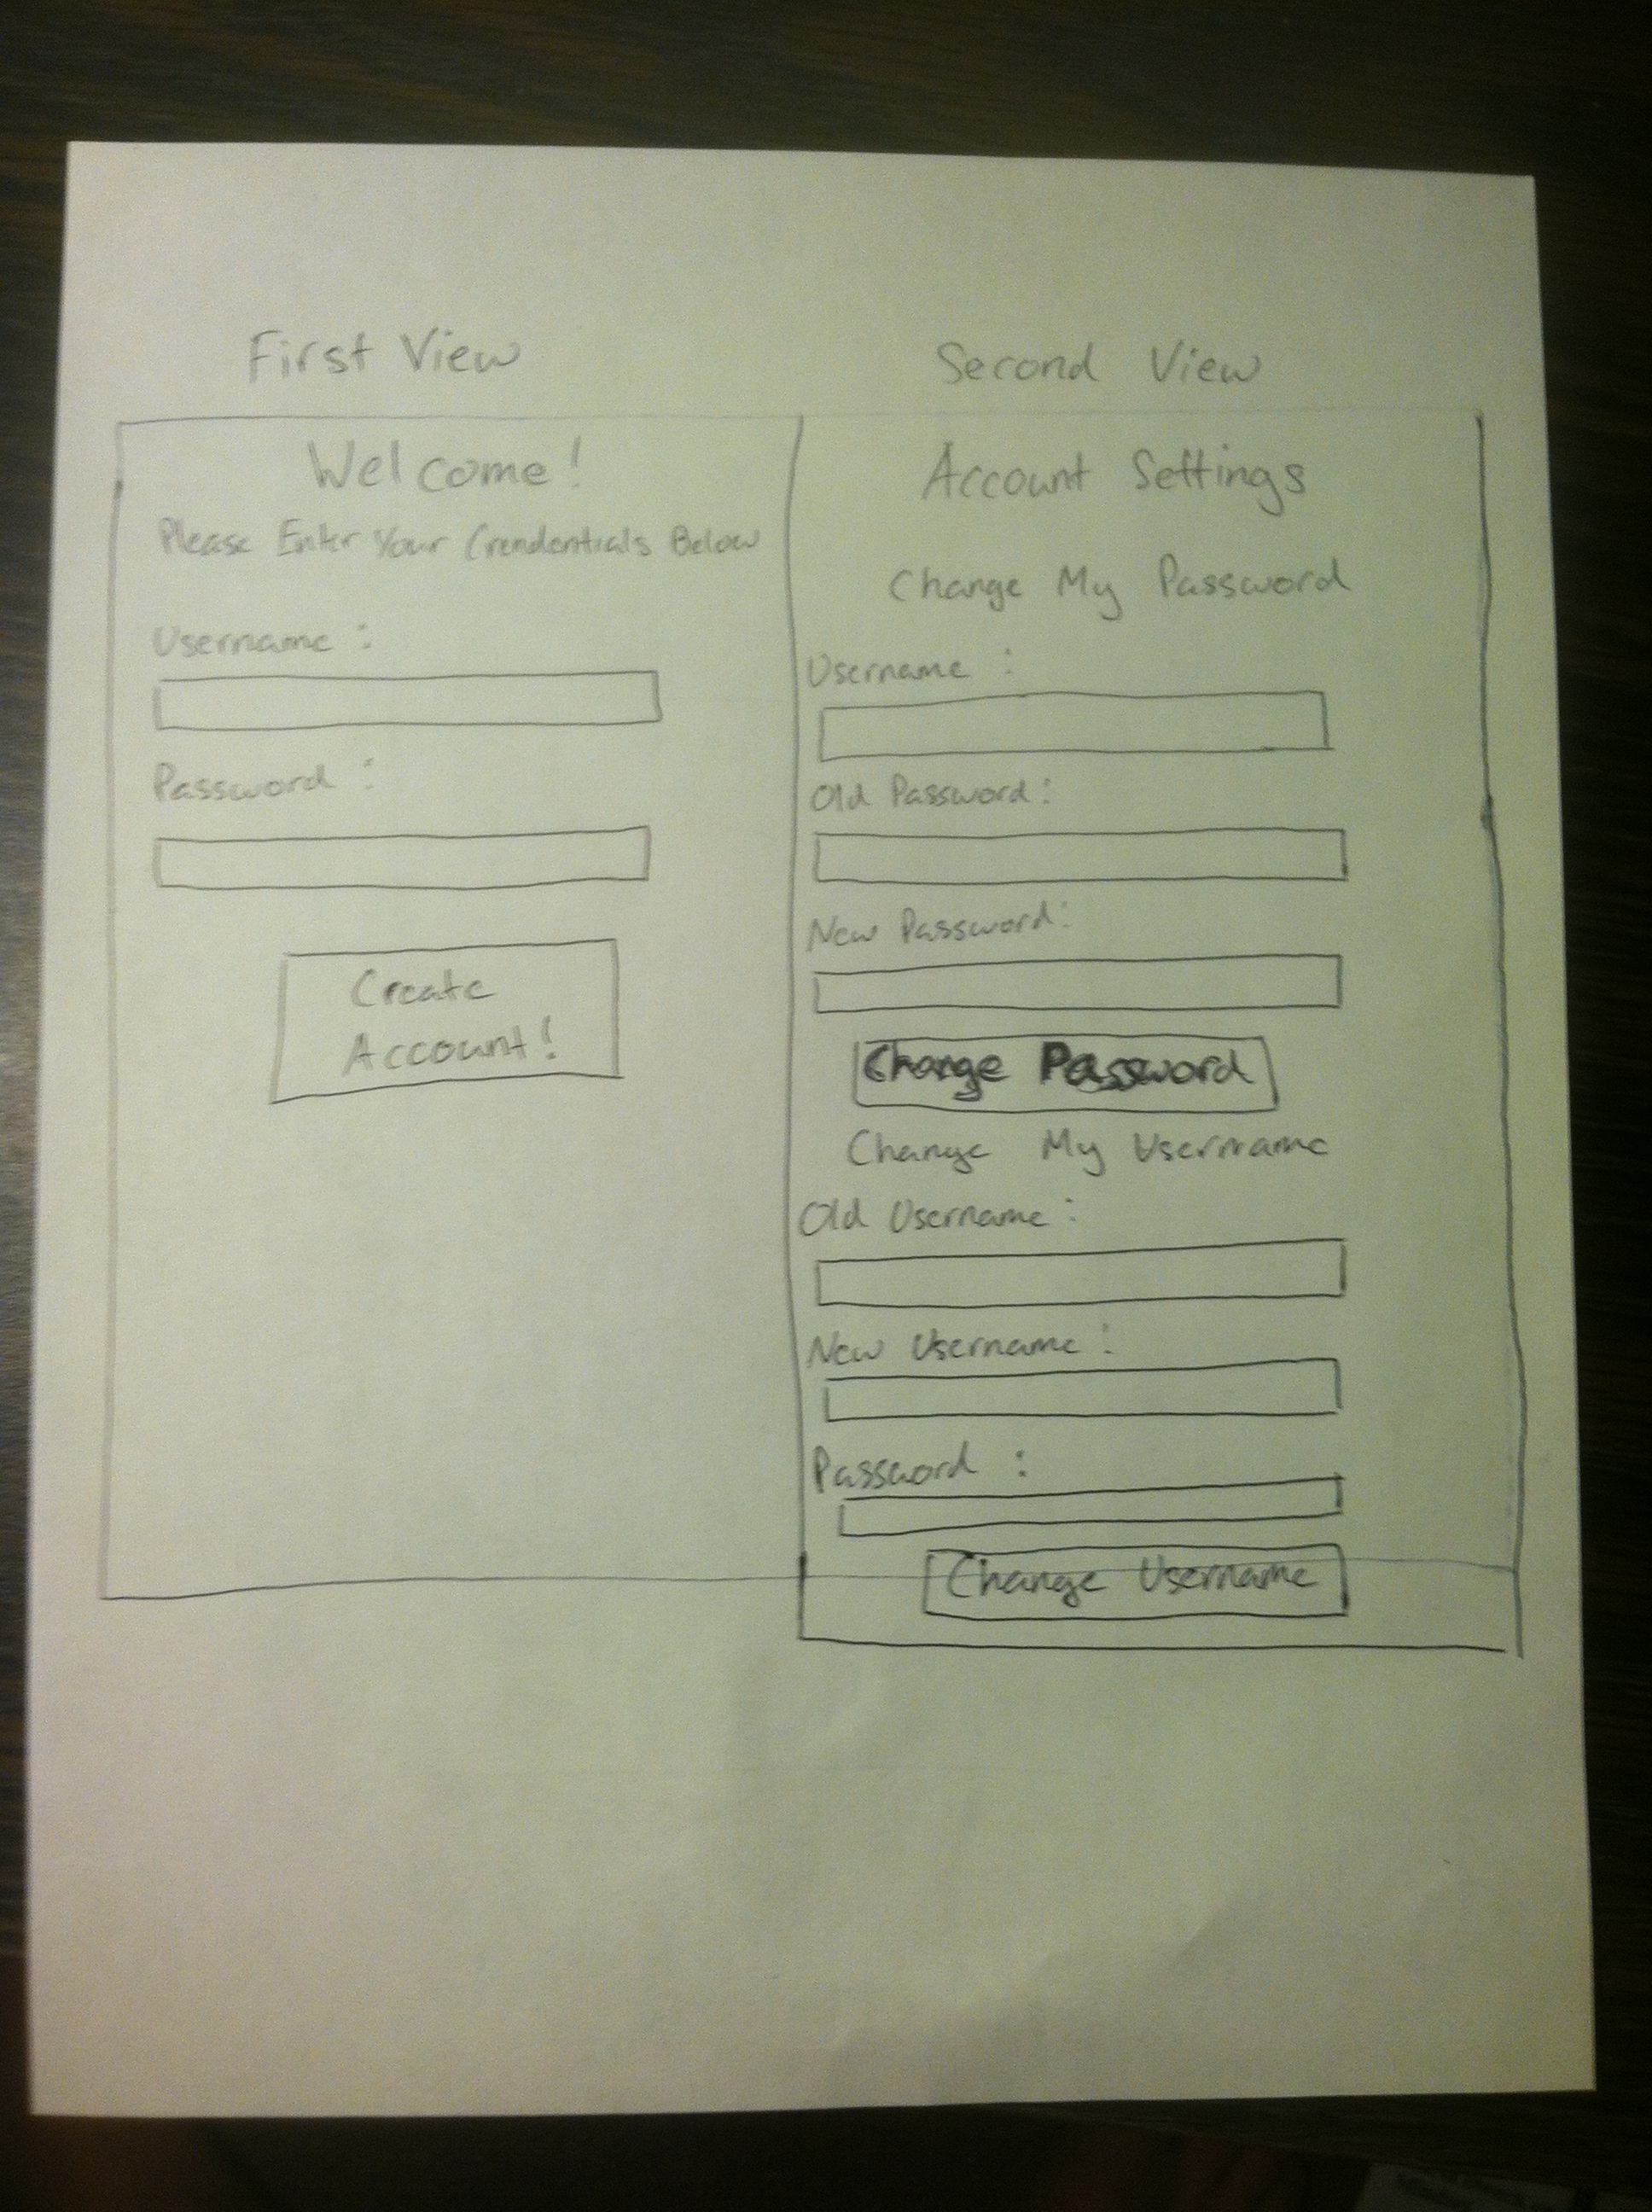 First View
Welcome!
Please Enter Your Crendentials Below
Username :
Password :
Create
Account!
Second View
Account Settings
Change My Password
Username :
Old Password:
New Password:
Change Password
Change My Username
Old Username:
New Username:
Password :
Change Username